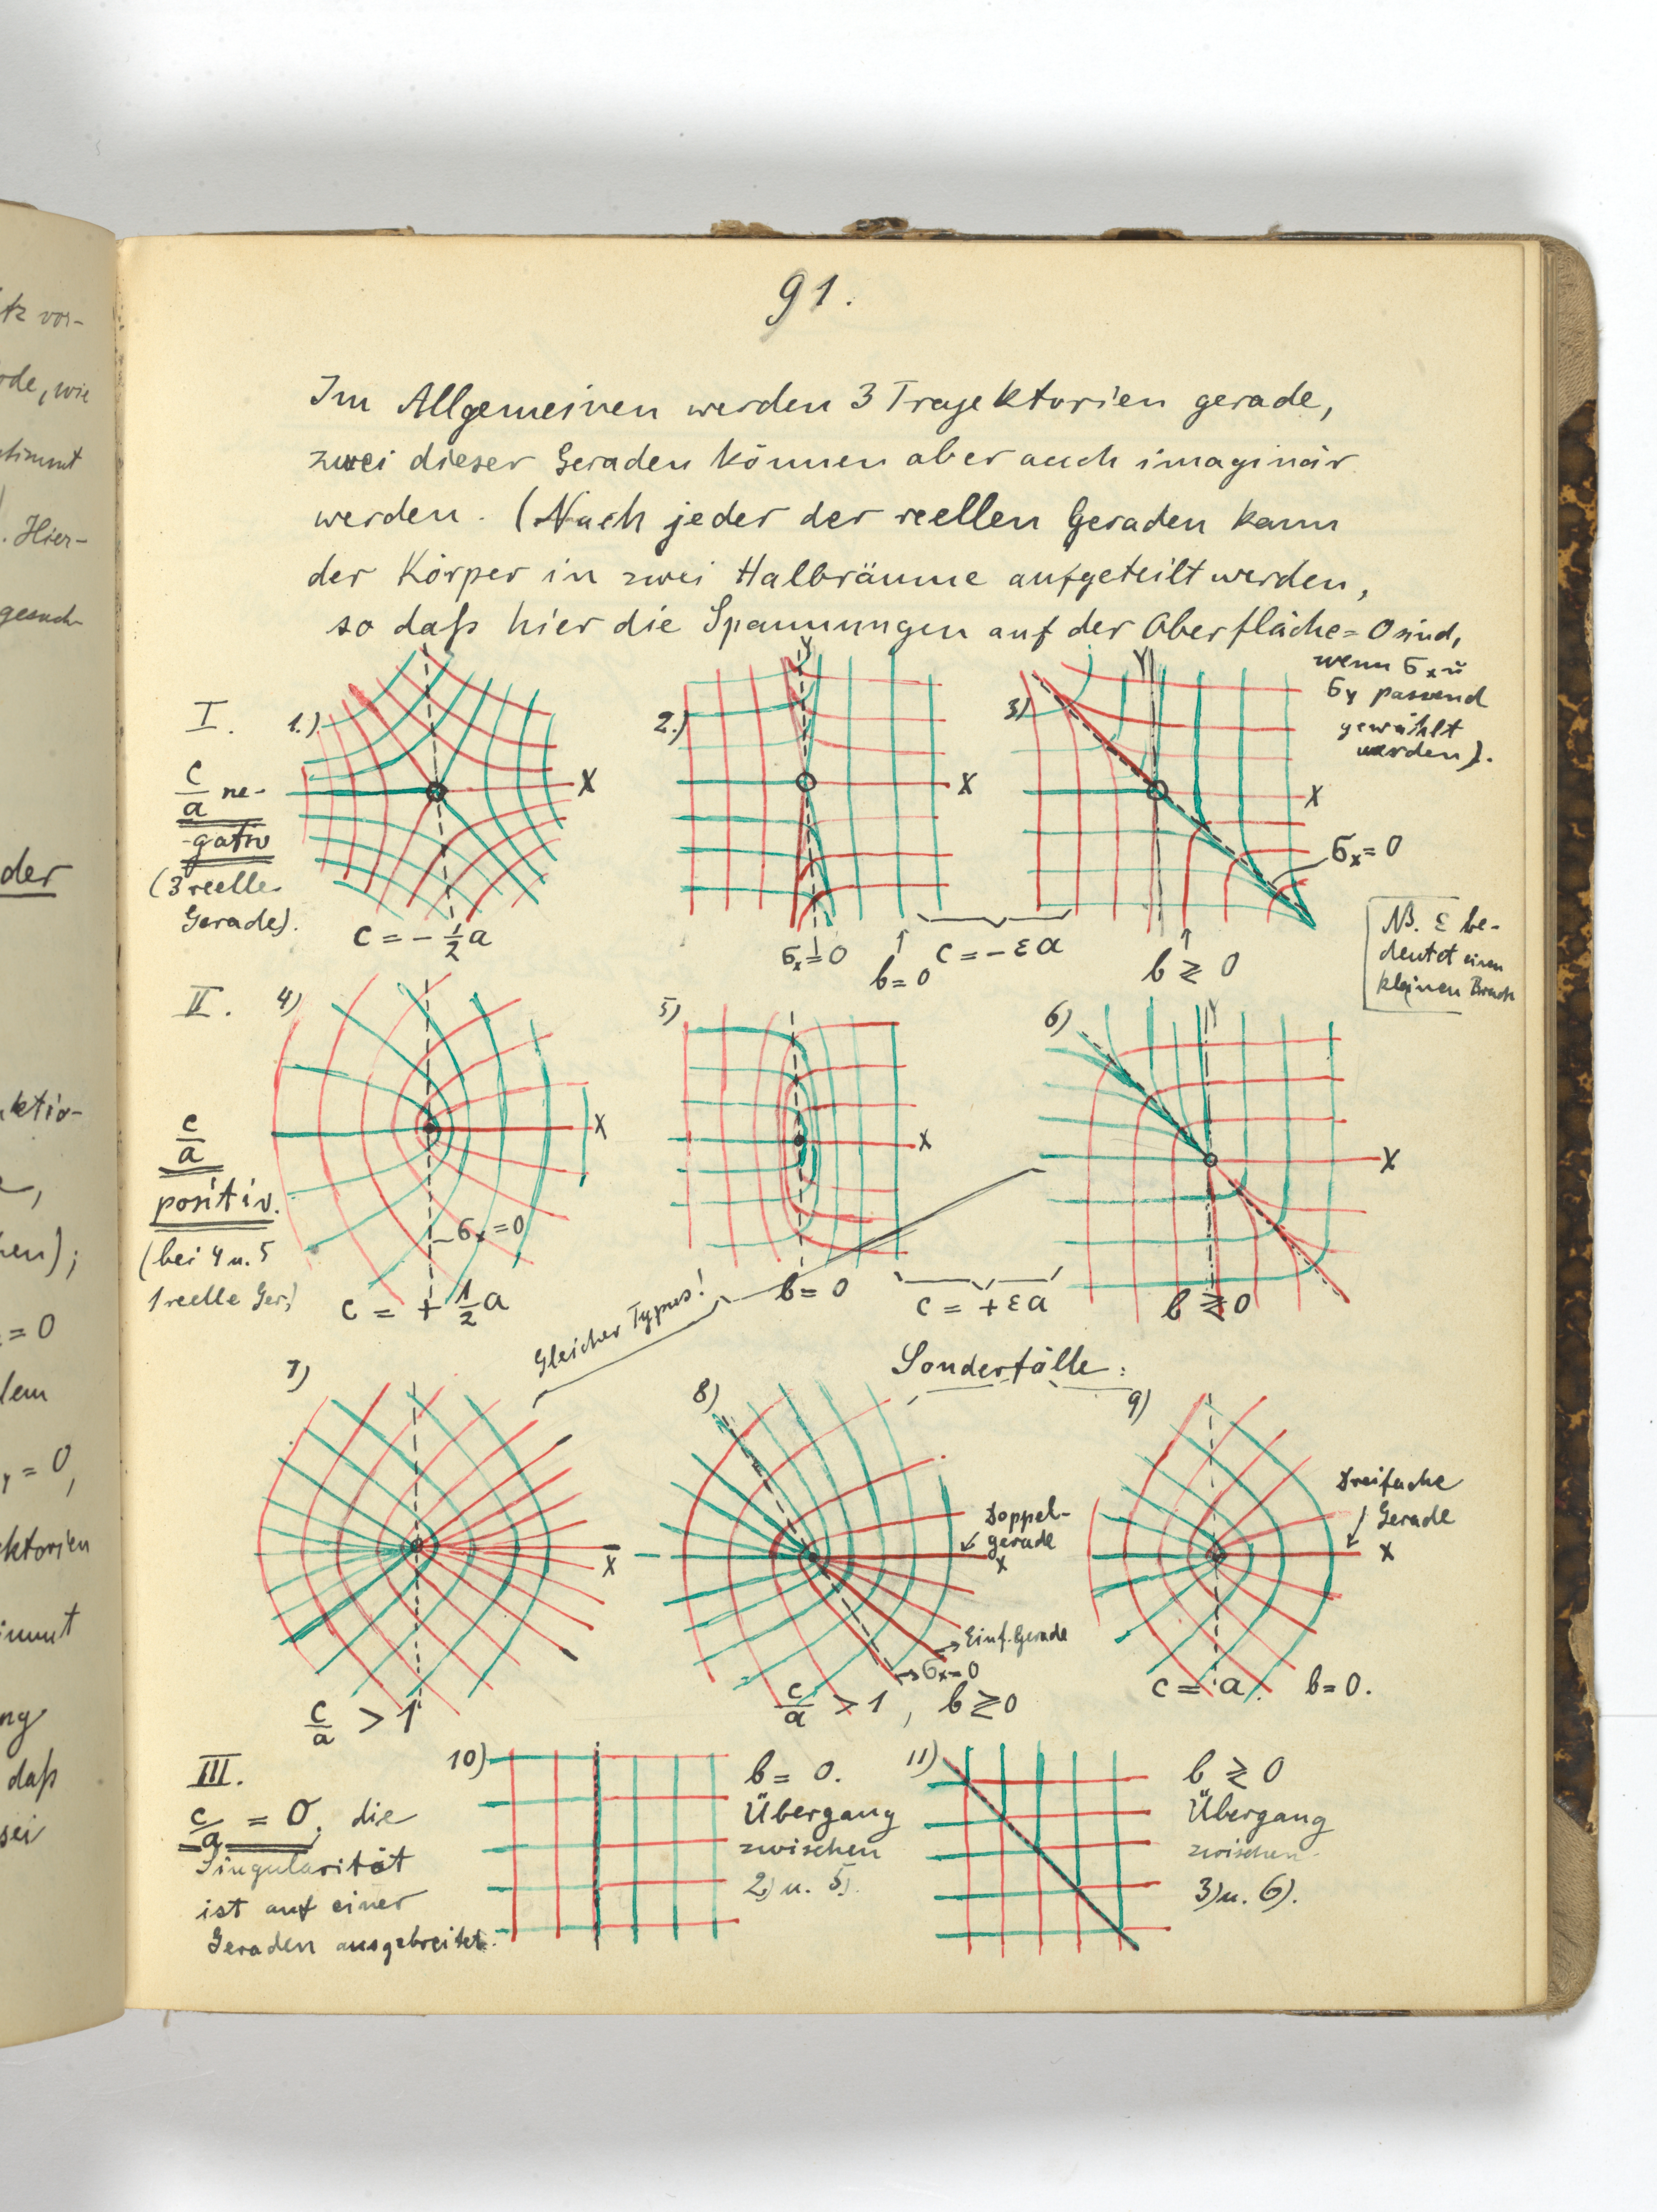 91.
Im Allgemeinen werden 3 Trajektorien gerade,
zwei dieser Geraden können aber auch imaginär
werden. (Nach jeder der reellen Geraden kann
der Körper in zwei Halbräume aufgeteilt werden,
so daß hier die Spannungen auf der Oberfläche = 0 sind,
wenn σx u
σy passend
gewählt
werden).
I.
c/a ne-
gativ
(3 reelle
Gerade).
1.)
X
c = - 1/2 a
2.)
Y
X
σx = 0
b = 0
c = - ε a
3)
Y
X
σx = 0
b ≷ 0
NB. ε be-
deutet einen
kleinen Bruch
II.
c/a
positiv.
(bei 4 u. 5
1 reelle Ger.)
4)
X
σx = 0
c = + 1/2 a
5)
X
b = 0
c = + ε a
6)
Y
X
b ≷ 0
Gleicher Typus!
Sonderfälle:
7)
X
c/a > 1
8)
Doppel-
gerade
X
Einf. Gerade
σx = 0
c/a > 1, b ≷ 0
9)
Dreifache
Gerade
X
c = a. b = 0.
III.
c/a = 0, die
Singularität
ist auf einer
Geraden ausgebreitet.
10)
b = 0.
Übergang
zwischen
2) u. 5).
11)
b ≷ 0
Übergang
zwischen
3) u. 6).
tz vor-
ode, wie
stimmt
. Hier-
gesuch-
der
ktio-
en);
= 0
dem
y = 0,
ktorien
immt
ng
daß
sei